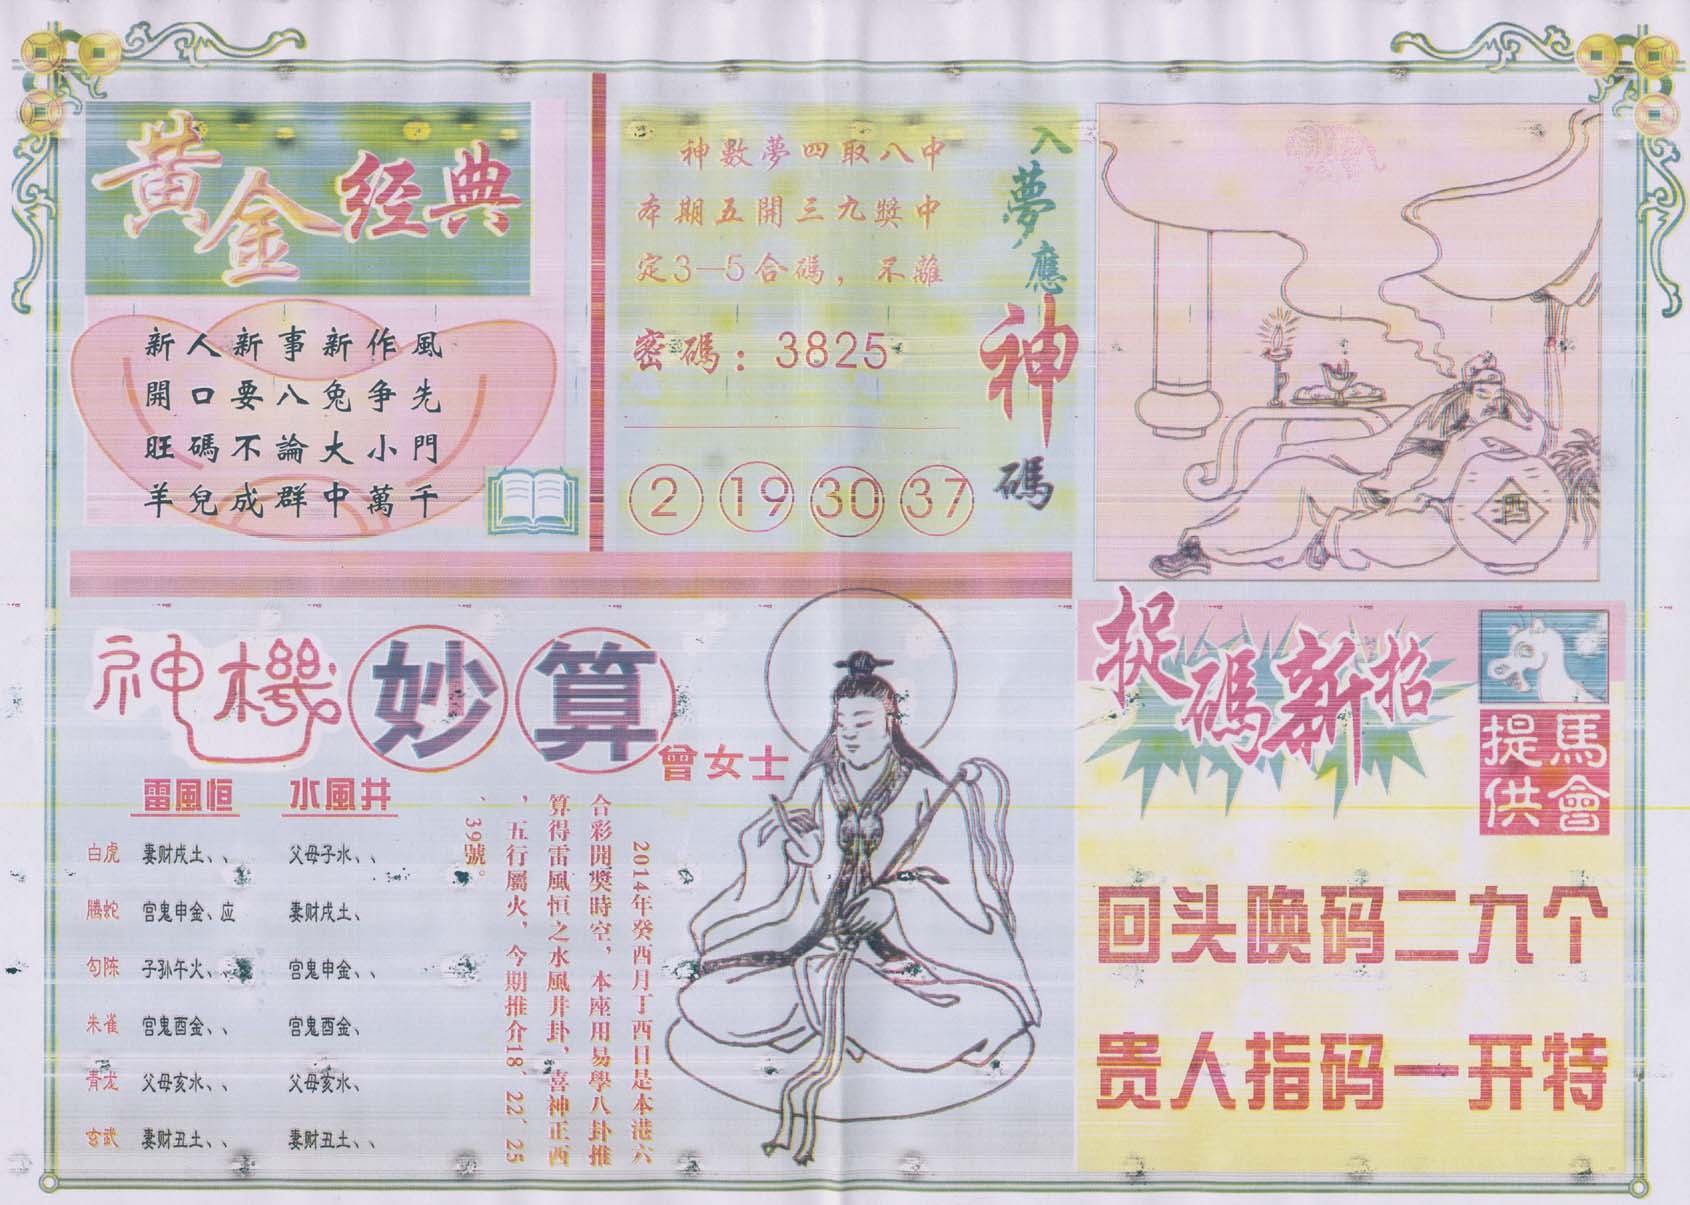 黄金经典
新人新事新作風
開口要八兔争先
旺碼不論大小門
羊兒成群中萬千
神數夢四取八中
本期五開三九獎中
定3—5合碼，不離
密碼：3825
2 19 30 37
入夢應神碼
酒
神機妙算
曾女士
雷風恒 水風井
白虎 妻财戌土、、 父母子水、、
腾蛇 宫鬼申金、应 妻财戌土、
勾陈 子孙午火、、 宫鬼申金、、
朱雀 宫鬼酉金、、 宫鬼酉金、
青龙 父母亥水、、 父母亥水、
玄武 妻财丑土、、 妻财丑土、、
2014年癸酉月丁酉日是本港六
合彩開獎時空，本座用易學八卦推
算得雷風恒之水風井卦、喜神正西
，五行屬火，今期推介18、22、25
、39號。
捉碼新招
馬會
提供
回头唤码二九个
贵人指码一开特